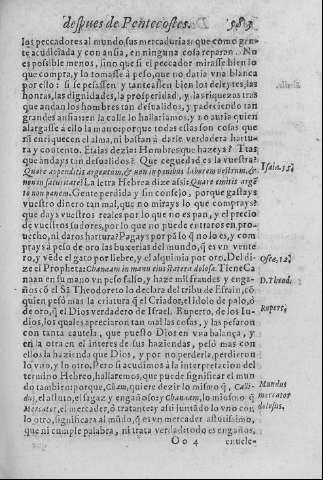 despues de Pentecostes.
los peccadores al mundo, sus mercadurias: que como gen-
te acudiciada y con ansia, en ninguna cosa reparan. No
es posible menos, sino que si el peccador mirasse bien lo
que compra, y lo tomasse à peso, que no daria vna blanca
por ello: si se pesassen y tanteassen bien los deleytes, las
honras, las dignidades, la prosperidad, y las riquezas tras
que andan los hombres tan desualidos, y padeciendo tan
grandes ansias: en la calle lo hallariamos, y no auria quien
alargasse à ello la mano: porque todas estas son cosas que
ni enriquecen el alma, ni bastan à darle verdadera hartu-
ra y contento. Esaias dezia: Hombres que hazeys? Tras
que andays tan desualidos? Que ceguedad es la vuestra?
Quare appenditis argentum, & non in panibus laborem vestrum, &
non in saturitate? La letra Hebrea dize assi: Quare emitis argē
to non panem. Gente perdida y sin consejo, porque gastays
vuestro dinero tan mal, que no mirays lo que comprays?
que days vuestros reales por lo que no es pan, y el precio
de vuestros sudores, por lo que no puede entraros en pro-
uecho, ni daros hartura? Pagays por pã lo q̃ no lo es, y com-
prays à peso de oro las buxerias del mundo, q̃ es vn vente
ro, y vẽde el gato por liebre, y el alquimia por oro. Del di-
ze el Propheta: Chanaam in manu eius statera dolosa. Tiene Ca
naan en su mano vn peso falso, y haze mil fraudes y enga-
ños cõ el. Si Theodoreto lo declara del tribu de Efrain, cõ
quien pesò mas la criatura q̃ el Criador, el idolo de palo, ò
de oro, q̃ el Dios verdadero de Israel. Ruperto, de los Iu-
dios, los quales preciaron tan mal las cosas, y las pesaron
con tanta cautela, que puesto Dios en vna balança, y
en la otra en el interes de sus haziendas, pesò mas con
ellos la hazienda que Dios, y por no perderla, perdieron
lo vno, y lo otro. Pero si acudimos à la interpretacion del
termino Hebreo, hallaremos, que puede significar el mun
do tambien: porque, Cham, quiere dezir lo mismo q̃, Cali-
dus, el astuto, el sagaz y engañoso: y Chanaam, lo mismo q̃
Mercator, el mercader, ò tratante: y assi juntado lo vno con
lo otro, significara al mũdo, q̃ es vn mercader astutissimo,
que ni cumple palabra, ni trata verdad: todo es engaños,
Oo 4
Isaia. 55.
Osee. 12.
D. Theod.
Rupert.
Mundus
mercator
dolosus.